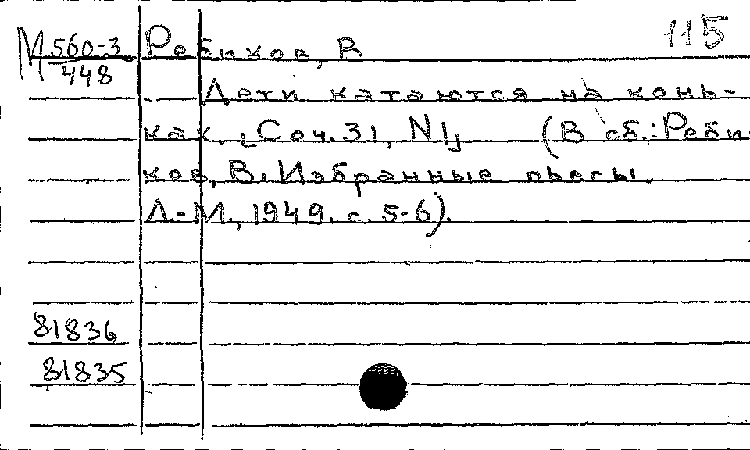 115
М 560-3
448
Ребиков, В.
Дети катаются на конь-
ках. [Соч. 31, N1] (В сб.: Реби-
ков, В. Избранные пьесы.
Л.-М., 1949. с. 5-6).
81836
81835